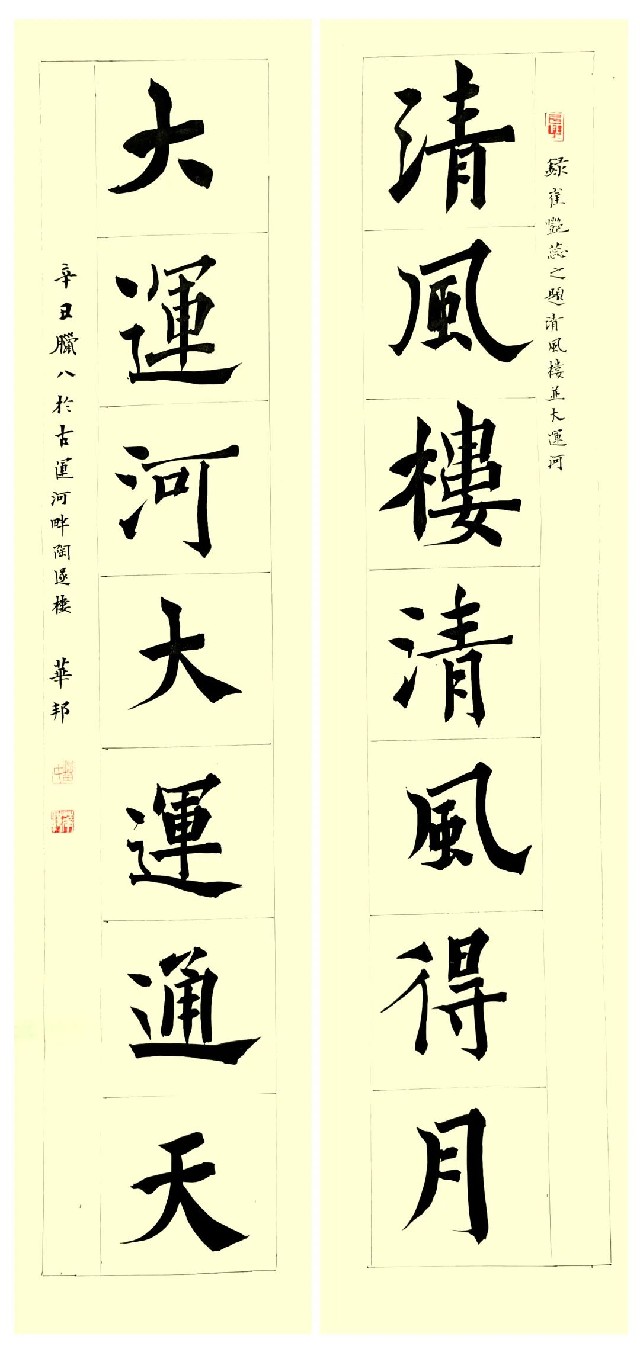 錄崔艷蕊之題清風樓並大運河
清風樓清風得月
大運河大運通天
辛丑臘八於古運河畔陶遥樓
華邦